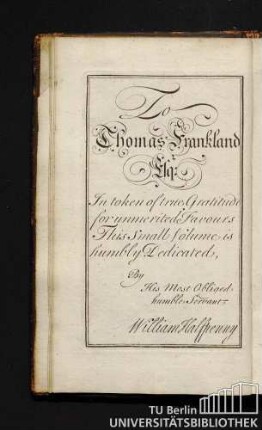 To
Thomas Frankland
Esqr.
In token of true Gratitude
for unmerited Favours
This Small Volume is
humbly Dedicated,
By
His Most Obliged
humble Servant
William Halfpenny
TU Berlin
UNIVERSITÄTSBIBLIOTHEK